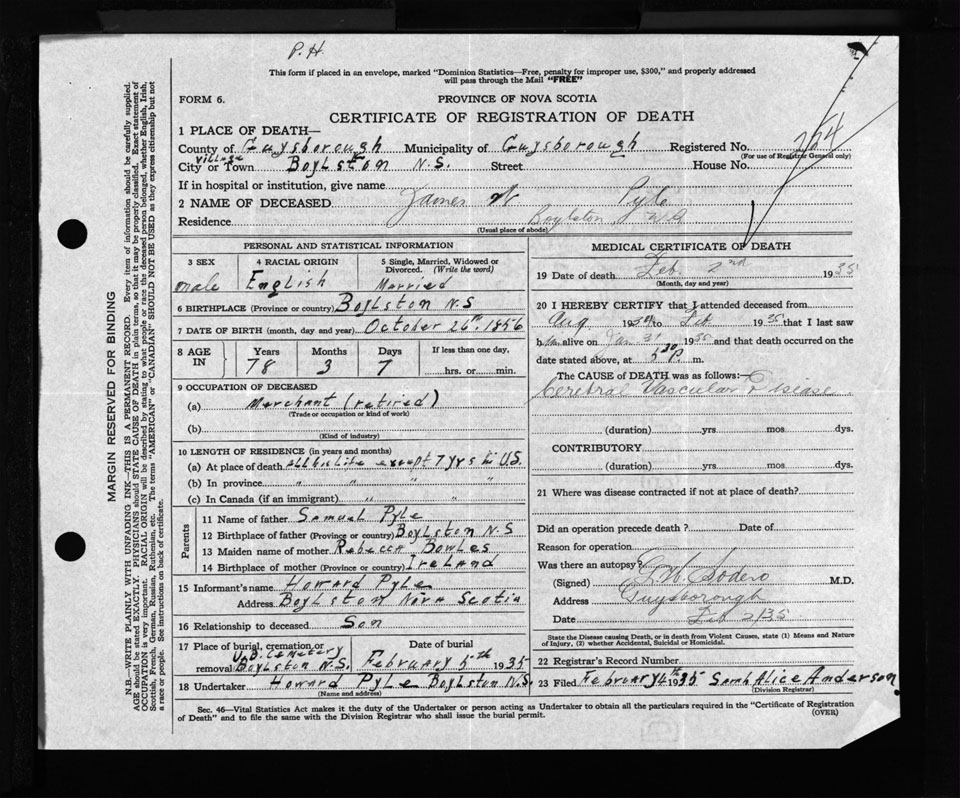 P. H.
This form if placed in an envelope, marked "Dominion Statistics—Free, penalty for improper use, $300," and properly addressed
will pass through the Mail "FREE"
FORM 6.
PROVINCE OF NOVA SCOTIA
CERTIFICATE OF REGISTRATION OF DEATH
1 PLACE OF DEATH—
County of Guysborough Municipality of Guysborough Registered No. 264
(For use of Registrar General only)
Village
City or Town Boylston N.S. Street House No.
If in hospital or institution, give name
2 NAME OF DECEASED James W Pyle
Residence Boylston N.S
(Usual place of abode)
PERSONAL AND STATISTICAL INFORMATION
3 SEX 4 RACIAL ORIGIN 5 Single, Married, Widowed or
Divorced. (Write the word)
male English Married
6 BIRTHPLACE (Province or country) Boylston N.S
7 DATE OF BIRTH (month, day and year) October 26th. 1856
8 AGE IN Years Months Days If less than one day,
78 3 7 hrs. or min.
9 OCCUPATION OF DECEASED
(a) Merchant (retired)
(Trade or occupation or kind of work)
(b)
(Kind of industry)
10 LENGTH OF RESIDENCE (in years and months)
(a) At place of death all his life except 7 yrs in U.S.
(b) In province " " " "
(c) In Canada (if an immigrant) " " "
Parents
11 Name of father Samuel Pyle
12 Birthplace of father (Province or country) Boylston N.S
13 Maiden name of mother Rebecca Bowles
14 Birthplace of mother (Province or country) Ireland
15 Informant's name Howard Pyle
Address Boylston Nova Scotia
16 Relationship to deceased Son
17 Place of burial, cremation or Date of burial
U.B. Cemetery
removal Boylston N.S. February 5th 1935
18 Undertaker Howard Pyle Boylston N.S.
(Name and address)
MEDICAL CERTIFICATE OF DEATH
19 Date of death Feb 2nd 1935
(Month, day and year)
20 I HEREBY CERTIFY that I attended deceased from
Aug 1934 to Feb 1935 that I last saw
h im alive on Jan 31 1935 and that death occurred on the
date stated above, at 5 30 P. m.
The CAUSE of DEATH was as follows:
Cerebral Vascular Disease
(duration) yrs mos dys.
CONTRIBUTORY
(duration) yrs. mos. dys.
21 Where was disease contracted if not at place of death?
Did an operation precede death? Date of
Reason for operation
Was there an autopsy?
(Signed) Sodero M.D.
Address Guysborough
Date Feb 2/35
State the Disease causing Death, or in death from Violent Causes, state (1) Means and Nature
of Injury, (2) whether Accidental, Suicidal or Homicidal.
22 Registrar's Record Number
23 Filed February 4th 1935 Sarah Alice Anderson.
(Division Registrar)
Sec. 46—Vital Statistics Act makes it the duty of the Undertaker or person acting as Undertaker to obtain all the particulars required in the "Certificate of Registration
of Death" and to file the same with the Division Registrar who shall issue the burial permit.
(OVER)
MARGIN RESERVED FOR BINDING
N.B.—WRITE PLAINLY WITH UNFADING INK—THIS IS A PERMANENT RECORD. Every item of information should be carefully supplied.
AGE should be stated EXACTLY. PHYSICIANS should STATE CAUSE OF DEATH in plain terms, so that it may be properly classified. Exact statement of
OCCUPATION is very important. RACIAL ORIGIN will be described by stating to what people or race the deceased person belonged, whether English, Irish,
Scottish, French, German, Russian, Ruthenian, etc. The terms "AMERICAN" or "CANADIAN" SHOULD NOT BE USED as they express citizenship but not
a race or people. See instructions on back of certificate.